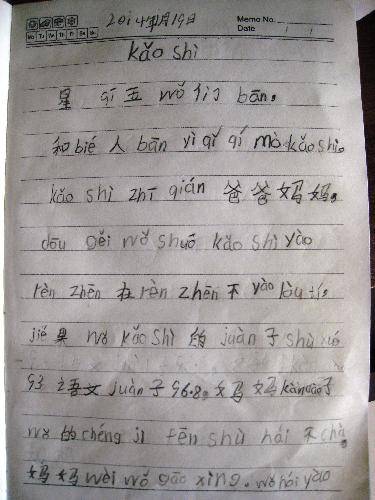 2014年1月19日
Memo No.
Mo Tu We Th Fr Sa Su
Date / /
kǎo shì
星 qī 五 wǒ 们 bān。
和 bié 人 bān yì qǐ qí mò kǎo shì。
kǎo shì zhī qián 爸爸妈妈。
dōu gěi wǒ shuō kǎo shì yào
rèn zhēn 在 rèn zhēn 不 yào lòu tí。
jié 果 wǒ kǎo shì 的 juàn 子 shù xué
93 语文 juàn 子 96.8。妈妈 kàn dào
wǒ 的 chéng jì fēn shù hái 不 chà。
妈妈 wèi wǒ gāo xìng。wǒ hái yào